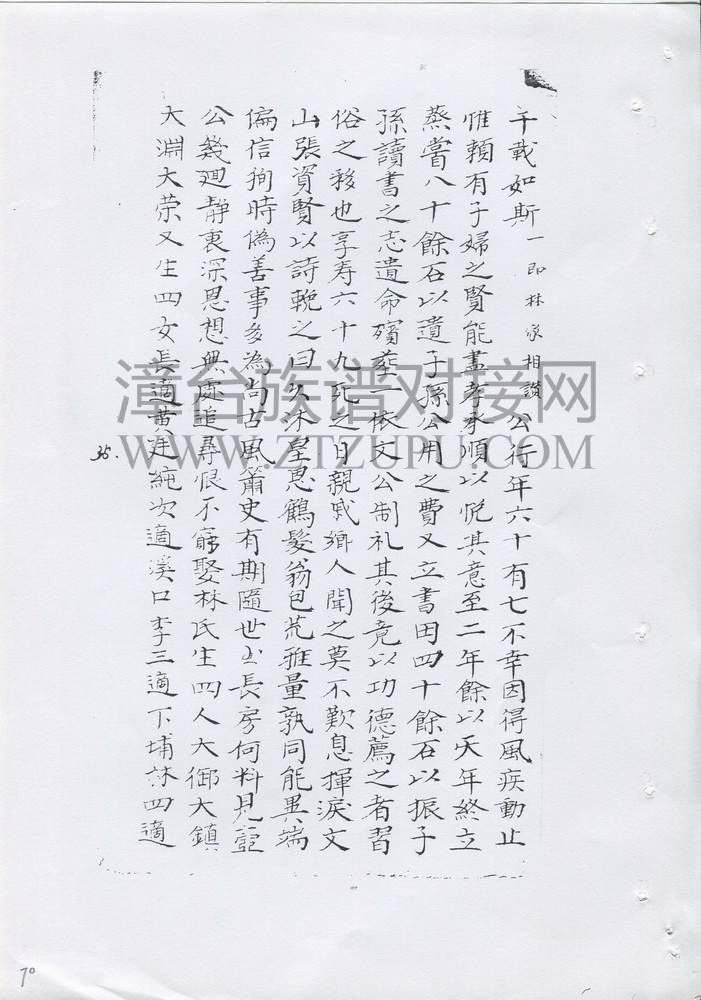 千載如斯一即林家相讃公行年六十有七不幸因得風疾動止
惟賴有子婦之賢能盡孝承順以悅其意至二年餘以天年終立
蒸嘗八十餘石以遺子孫公用之費又立書田四十餘石以振子
孫讀書之志遺命殯葬一依文公制礼其後竟以功德薦之者習
俗之移也享寿六十九死之日親戚鄉人聞之莫不歎息揮淚文
山張資賢以詩輓之曰久沐皇恩鶴髮翁包荒雅量孰同能異端
偏信狥時偽善事多為尚古風簫史有期隨世長房何料見壼
公幾廻靜裏深思想無處追尋恨不窮娶林氏生四人大御大鎮
大淵大荣又生四女長適黄廷純次適溪口李三適下埔林四適
35.
70
漳台族谱对接网
WWW.ZTZUPU.COM